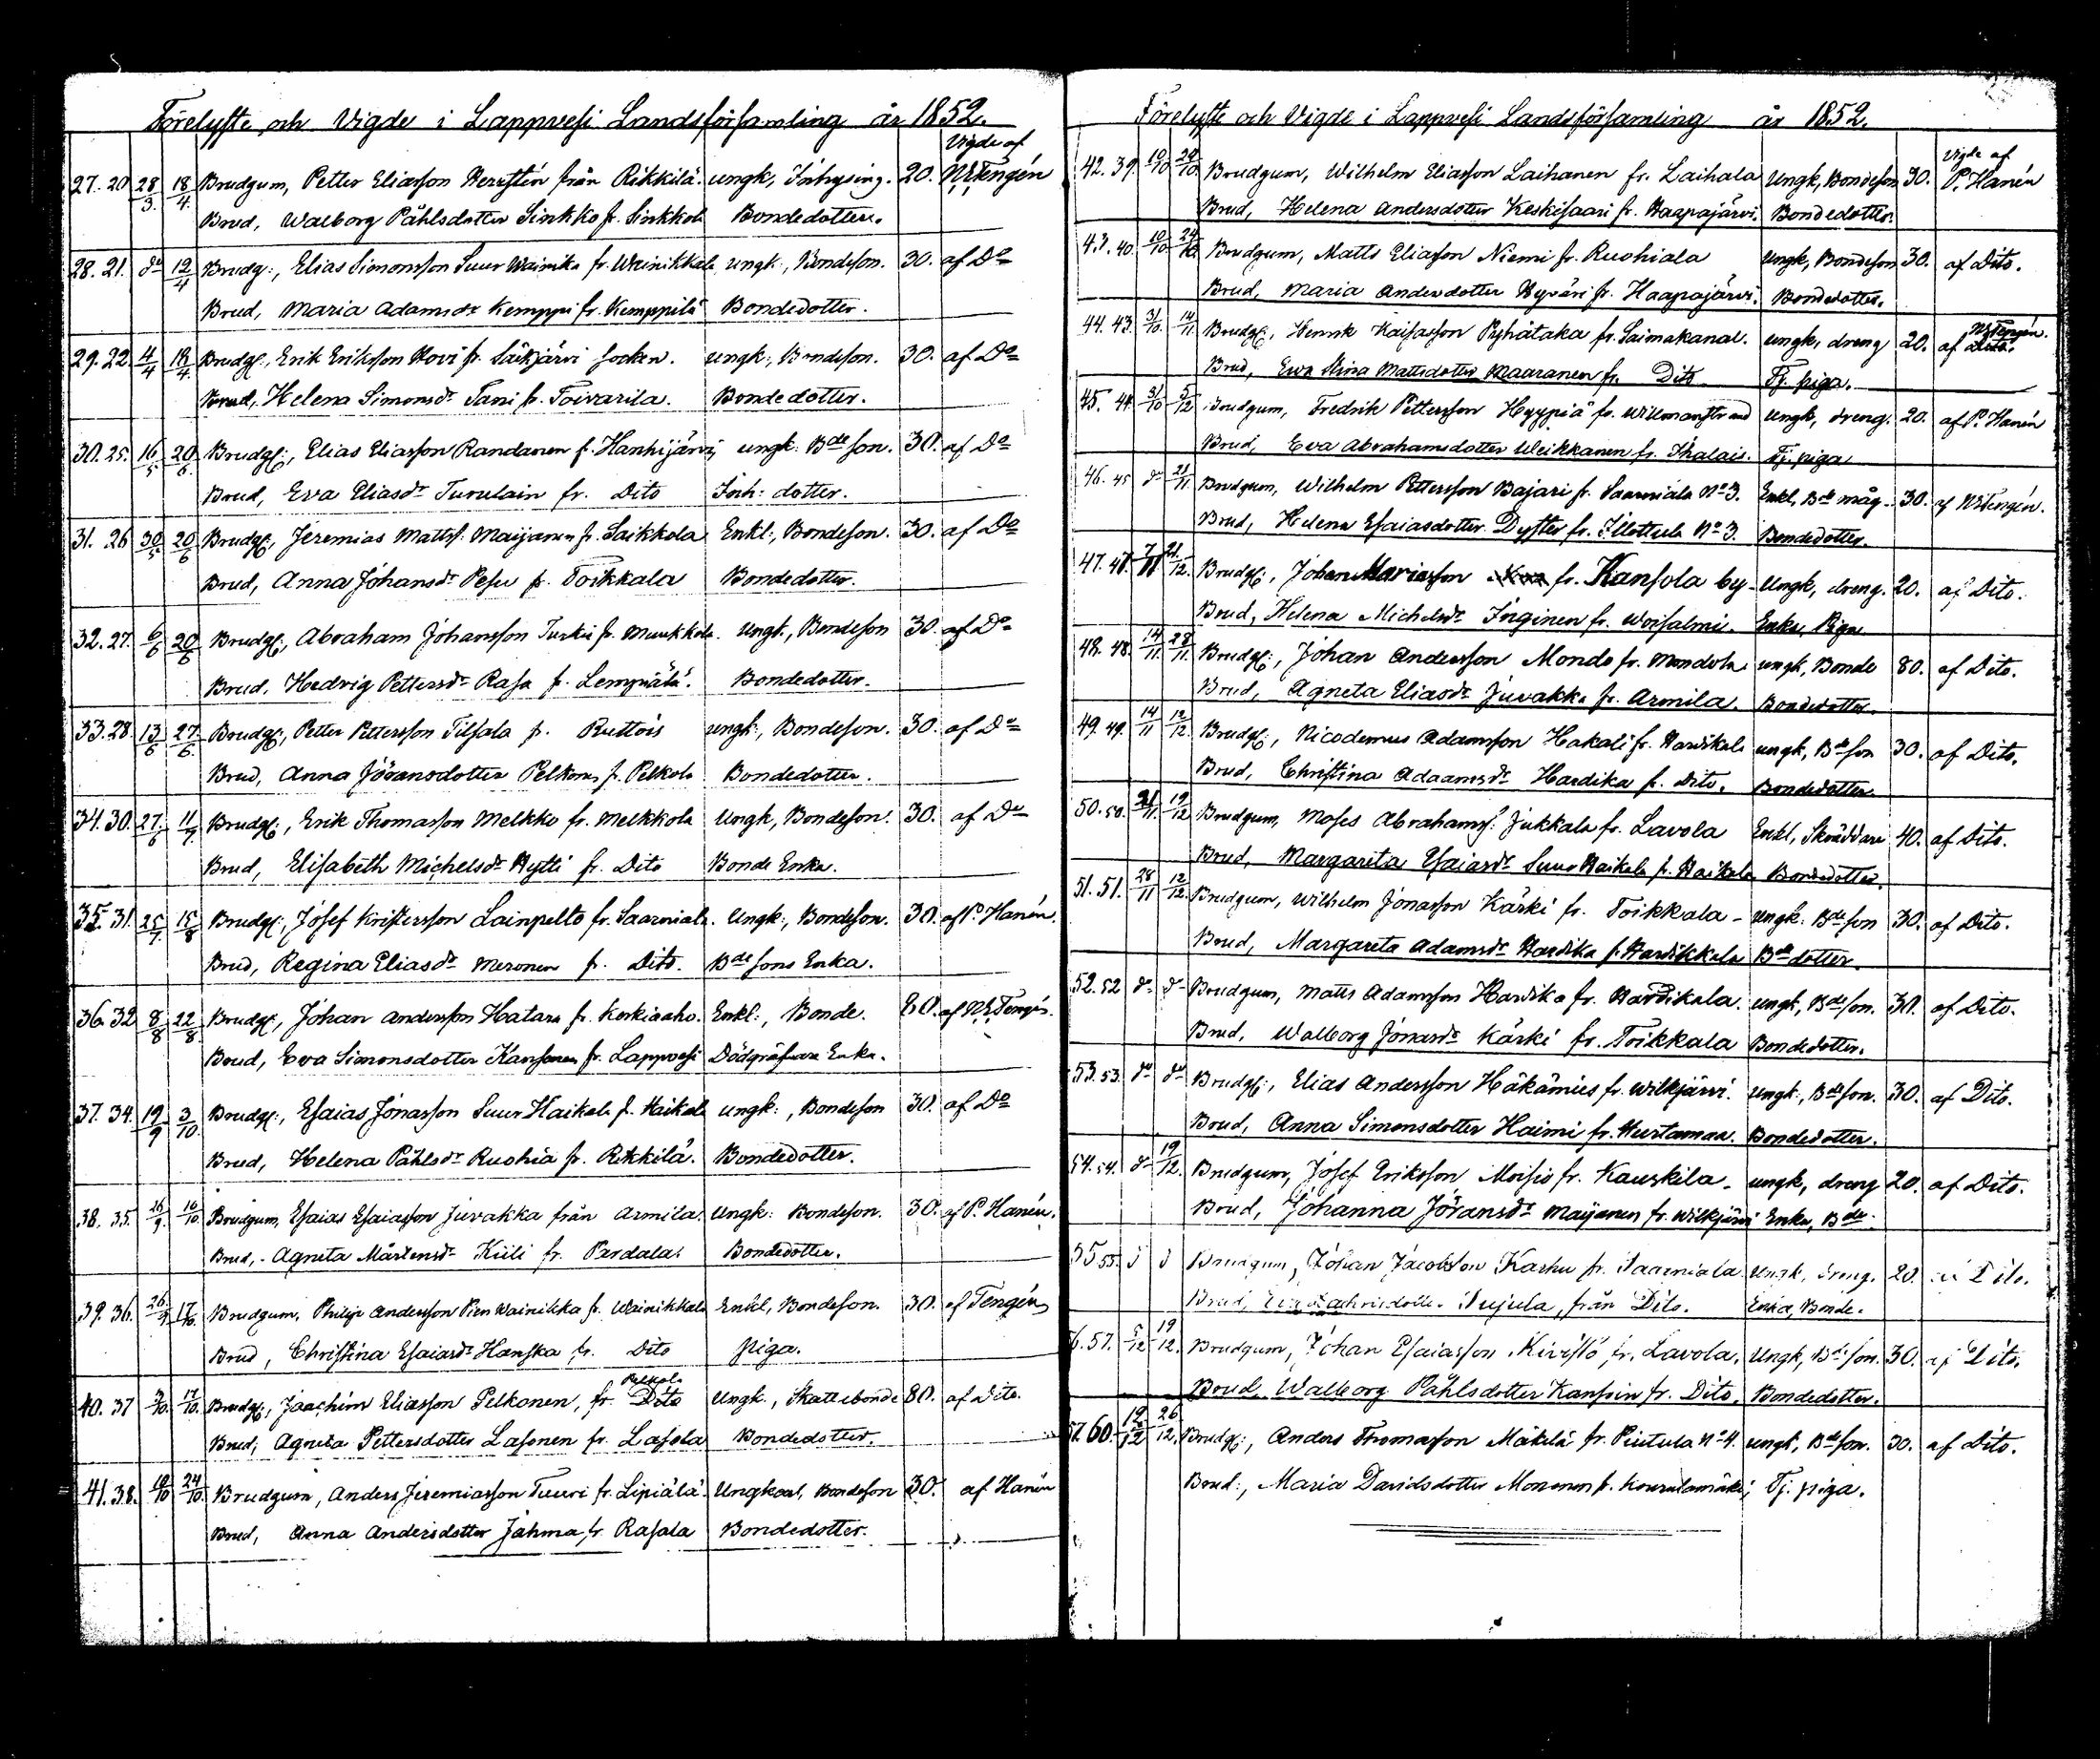 Förelyste och Vigde i Lappvesi Landsförsamling år 1852.
Vigde af
27. 20 28/3 18/4 Brudgum, Petter Eliasson från Rikkilä. ungk, Inhysing. 20. Tengén
Brud, Walborg Påhlsdotter Sinkko fr. Sinkkola Bondedotter.
28. 21. do 12/4 Brudg:, Elias Simonsson Suur Wainikka fr. Wainikkala ungk:, Bondeson. 30. af Do
Brud, Maria Adamsdr Kemppi fr. Kemppilä Bondedotter.
29. 22. 4/4 18/4 Brudg:, Erik Eriksson Hovi fr. Säkjärvi Socken. ungk:, Bondeson. 30. af Do
Brud, Helena Simonsdr Tani fr. Toivarila. Bondedotter.
30. 25. 16/5 20/6 Brudg:, Elias Eliasson Randanen fr. Hanhijärvi ungk: Bde son. 30. af Do
Brud, Eva Eliasdr Turulain fr. Dito Inh: dotter.
31. 26 30/5 20/6 Brudg:, Jeremias Mattss. Maijanen fr. Saikkola Enkl:, Bondeson. 30. af Do
Brud, Anna Johansdr Pesu fr. Toikkala Bondedotter.
32. 27. 6/6 20/6 Brudg:, Abraham Johansson Turkia fr. Muukkola. Ungk., Bondeson 30. af Do
Brud, Hedvig Pettersdr Rasa fr. Lempiälä. Bondedotter.
33. 28. 13/6 27/6 Brudg:, Petter Pettersson Tilsala fr. Ruttois ungk:, Bondeson. 30. af Do
Brud, Anna Jöransdotter Pelkonen fr. Pelkola Bondedotter.
34. 30. 27/6 11/7 Brudg:, Erik Thomasson Melkko fr. Melkkola Ungk, Bondeson. 30. af Do
Brud, Elisabeth Michelsdr Hytti fr. Dito Bonde Enka.
35. 31. 25/7 15/8 Brudg:, Josef Kristersson Lainpelto fr. Saarniala. Ungk:, Bondeson. 30. af P. Hanén.
Brud, Regina Eliasdr Meronen fr. Dito. Bde sons Enka.
36. 32 8/8 22/8 Brudg:, Johan Andersson Hatara fr. Korkiaaho. Enkl:, Bonde. 80. af Tengén.
Brud, Eva Simonsdotter Kansanen fr. Lappvesi Dödgräfvare Enka.
37. 34. 19/9 3/10 Brudg:, Esaias Jonasson Suur Haikala fr. Haikala ungk:, Bondeson 30. af Do
Brud, Helena Påhlsdr Ruohia fr. Rikkilä. Bondedotter.
38. 35. 16/9 10/10 Brudgum, Esaias Esaiasson Juvakka från Armila. Ungk: Bondeson. 30. af P. Hanén.
Brud, Agneta Mårtensdr Kiili fr. Pardala. Bondedotter.
39. 36. 26/9 17/10 Brudgum, Philip Andersson Pien Wainikka fr. Wainikkala Enkl, Bondeson. 30. af Tengén
Brud, Christina Esaiasdr Hanska fr. Dito piga.
Pelkola
40. 37 3/10 17/10 Brudg:, Joachim Eliasson Pelkonen, fr. Dito Ungk., Skattebonde 80. af Dito.
Brud, Agneta Pettersdotter Lasonen fr. Lasola Bondedotter.
41. 38. 10/10 24/10 Brudgum, Anders Jeremiasson Tuuri fr. Lipiälä. Ungkarl, Bondeson 30. af Hanén
Brud, Anna Andersdotter Jähma fr Rasala Bondedotter.
Förelyste och Vigde i Lappvesi Landsförsamling år 1852.
Vigde af
42. 39. 10/10 24/10 Brudgum, Wilhelm Eliasson Laihanen fr. Laihala Ungk, Bondeson 30. P. Hanén
Brud, Helena Andersdotter Keskisaari fr. Haapajärvi. Bondedotter.
43. 40. 10/10 24/10 Brudgum, Matts Eliasson Niemi fr. Ruohiala Ungk, Bondeson 30. af Dito.
Brud, Maria Andersdotter Hyväri fr. Haapajärvi. Bondedotter.
44. 43. 31/10 14/11 Brudg:, Henrik Kaisasson Pyhätaka fr. Saimakanal. ungk, dreng 20. af Tengén.
Brud, Eva Stina Mattsdotter Maaranen fr. Dito Tj. piga.
45. 44 31/10 5/12 Brudgum, Fredrik Pettersson Hyypiä fr. Willmanstrand Ungk, dreng. 20. af P. Hanén
Brud, Eva Abrahamsdotter Weikkanen fr. Ihalais. Tj. piga
46. 45 do 21/11 Brudgum, Wilhelm Pettersson Bajari fr. Saarniala No 3. Enkl, Bde måg. 30. af Tengén.
Brud, Helena Esaiasdotter Dyster fr. Illottula No 3. Bondedotter.
47. 7/11 21/12 Brudg:, Johan Mariasson fr. Kansola by. Ungk, dreng. 20. af Dito.
Brud, Helena Michelsdr Inginen fr. Woisalmi. Enka, Piga
48. 48. 14/11 28/11 Brudg:, Johan Andersson Mondo fr. Mondola ungk, Bonde 80. af Dito.
Brud, Agneta Eliasdr Juvakka fr. Armila. Bondedotter.
49. 49. 14/11 12/12 Brudg:, Nicodemus Adamsson Hakali fr. Hardikala ungk, Bde son 30. af Dito.
Brud, Christina Adaamsdr Hardika fr. Dito. Bondedotter.
50. 50. 21/11 19/12 Brudgum, Moses Abrahamss: Jukkala fr. Lavola Enkl, Skräddare 40. af Dito.
Brud, Margareta Esaiasdr Suur Haikala fr. Haikala Bondedotter.
51. 51. 28/11 12/12 Brudgum, Wilhelm Jonasson Kärki fr. Toikkala - ungk: Bde son 30. af Dito.
Brud, Margareta Adamsdr Hardika fr. Hardikkala Bde dotter.
52. 52 do do Brudgum, Matts Adamsson Hardika fr. Hardikala. ungk, Bde son. 30. af Dito.
Brud, Walborg Jonasdr Kärki fr. Toikkala Bondedotter.
53. 53. do do Brudg:, Elias Andersson Häkämies fr. Wilkjärvi. ungk, Bde son. 30. af Dito.
Brud, Anna Simonsdotter Haimi fr. Hurtamaa. Bondedotter.
54. 54. do 19/12 Brudgum, Josef Eriksson Moisio fr. Kauskila - ungk, dreng 20. af Dito.
Brud, Johanna Jöransdr Maijanen fr. Wilkjärvi Enka, Bde.
55 55. Brudgum, Johan Jacobsson Karhu fr. Saarniala Ungk, dreng. 20. af Dito.
Brud, Eva Sujula, från Dito. Enka, Bonde.
6. 57. 5/12 19/12 Brudgum, Johan Esaiasson Kivistö fr. Lavola. Ungk, Bde son. 30. af Dito.
Brud Walborg Påhlsdotter Kanssin fr. Dito. Bondedotter.
57. 60. 12/12 26/12 Brudg:, Anders Thomasson Mäkelä fr. Piutula No 4. ungk, Bde son. 30. af Dito.
Brud:, Maria Davidsdotter Mononen fr. Kourulamäki, Tj. piga.